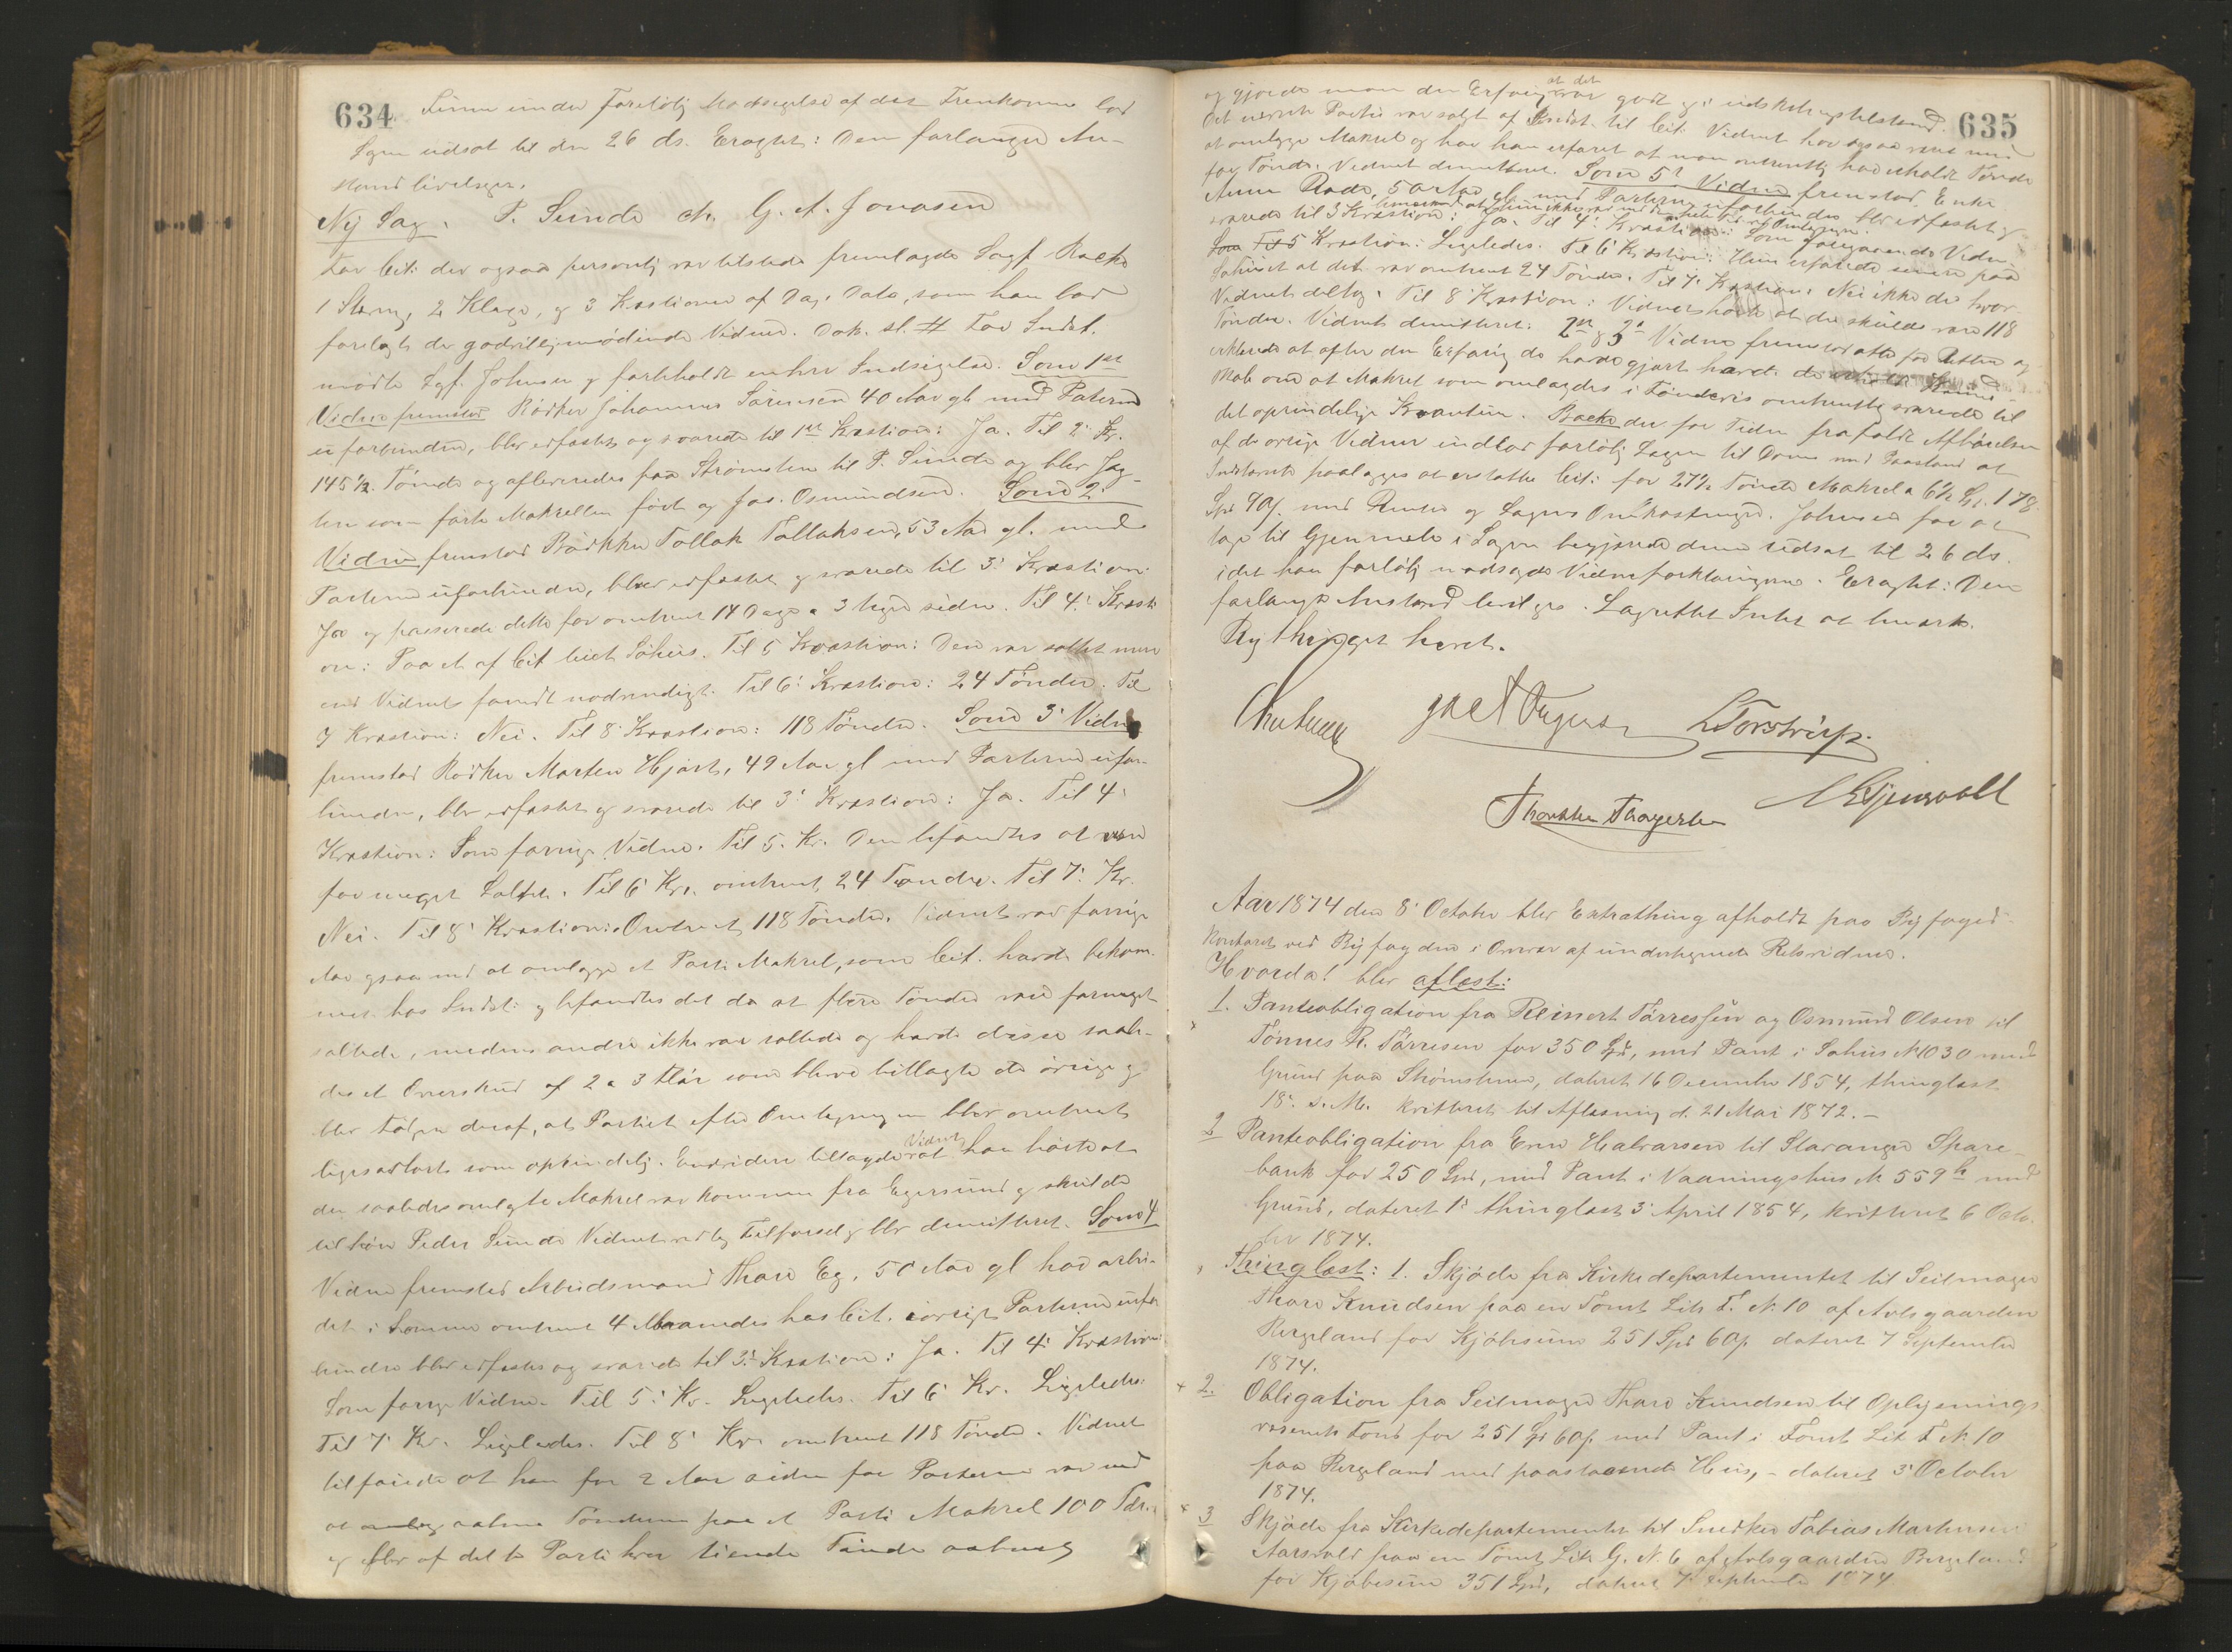 634
Sinne under Foreløbig Modsigelse af det Fremkomne lod
Sagen udsat til den 26 ds. Eragtet: Den forlangte An-
stand bevilges.
Ny Sag. P. Sunde ctr. G. A. Jonasen
For Cit: der ogsaa personlig var tilstede fremlagde Sagf.
1 Stevng, 2 Klage, og 3 Kvæstioner af Dags Dato, som han lod
forelagt de godvilligmødende Vidner. Dok. sl. # For Indst.
mødte Sgf. Johnsen og forbeholdt enhver Indsigelse. Som 1ste
Vidne fremstod Bødker Johannes Sørensen 40 Aar gl. med Parterne
uforbunden, blev edfæstet og svarede til 1ste Kvæstion: Ja. Til 2: Kv.
145½ Tønde og afleveredes paa Strømsten til P. Sunde og blev Jag-
ten som førte Makrellen ført og Jas. Osmundsen. Som 2:
Vidne fremstod Bødkker Tollak Tollaksen, 53 Aar gl. med
Parterne uforbunden, blev edfæstet og svarede til 3: Kvæstion:
Ja og passerede dette for omtrent 14 Dage a 3 Uger siden. Til 4: Kvæsti
on: Paa et af Cit leiet Søhus. Til 5 Kvæstion: Den var saltet mere
end Vidnet fandt nødvendigt. Til 6: Kvæstion: 24 Tønder. Til
7 Kvæstion: Nei. Til 8: Kvæstion: 118 Tønder. Som 3: Vidne
fremstod Bødker Morten Hjort, 49 Aar gl med Parterne ufor-
bunden, blev edfæstet og svarede til 3: Kvæstion: Ja. Til 4:
Kvæstion: Som forrige Vidne. Til 5. Kv. Den befandtes at være
for meget Saltet. Til 6 Kv. omtrent 24 Tønder. Til 7: Kv.
Nei. Til 8: Kvæstion: Omtrent 118 Tønder. Vidnet var forrige
Aar ogsaa med at omlægge et Parti Makrel, som Cit. havde bekom-
met hos Indst: og befandtes det da at flere Tønder vare formeget
saltede, medens andre ikke var saltede og havde disse saale-
des et Overskud af 2 a 3 som bleve tillagte de øvrige og
blev Følgen deraf, at Partiet efter Omlegningen blev omtrent
ligesaastort som oprindelig. Endvidere tillagde Vidnet at han hørte at
den saaledes omlagte Makrel var kommen fra Egersund og skulde
tilhøre Peder Sunde Vidnet vedtog Tilførsel og blev demitteret. Som 4
Vidne fremstod Arbeidsmand Thore Eg, 50 Aar gl har arbei-
det i Sommer omtrent 4 Maaneder hos Cit. iøvrigt Parterne ufor
bunden blev edfæstet og svarede til 3: Kvæstion: Ja. Til 4: Kvæstion:
Som forrige Vidne. Til 5: Kv. Ligeledes. Til 6 Kv. Ligeledes:
Til 7: Kv. Ligeledes. Til 8: Kv. omtrent 118 Tønder. Vidnet
tilføiede at han for 2 Aar siden for Parterne var med
at aabne Tønderne paa et Parti Makrel 100 Tdr.
og blev af dette Parti hver tiende Tønde aabnet
635
og gjorde man den Erfaring at det var godt og i udskibningstilstand.
Det nævnte Parti var solgt af Indst. til Cit. Vidnet har ogsaa været med
at omlægge Makrel og har han erfaret at man omtrentlig har erholdt Tønde
for Tønde. Vidnet demitteret. Som 5t Vidne fremstod Enke
Anne Rode, 50 Aar gl. med Parterne uforbunden blev edfæstet og
svarede til 3 Kvæstion: Ja. Til 4: Kvæstion: Som foregaaende Vidne
Til 5 Kvæstion: Ligeledes. Til 6 Kvæstion: Hun erfarede senere paa
Søhuset at det var omtrent 24 Tønder. Til 7: Kvæstion: Nei ikke de hvor
Vidnet deltog. Til 8: Kvæstion: Vidnet hørte at der skulde være 118
Tønder. Vidnet demitteret. 2n og 3e Vidne fremstod atter for Retten og
erklærede at efter den Erfaring de havde gjort havde de
skab om at Makrel som omlagdes i Tøndevis omtrentlig svarede til
det oprindelige Kvantum. der for Tiden frafaldt Afhørelsen
af de øvrige Vidner indlod foreløbig Sagen til Doms med Paastand at
Indstevnte paalægges at erstatte Cit: for 27½ Tønde Makrel a 6½ Spd. 178
Spd 90 s. med Renter og Sagens Omkostninger. Johnsen for at
tage til Gjenmæle i Sagen begjærede denne udsat til 26 ds.
idet han foreløbig modsagde Vidneforklaringerne. Eragtet: Den
forlangte Anstand bevilges. Lagrettet Intet at bemærke.
Bythinget hævet.
L Torstrup
Thorsten Thorgersen
Aar 1874 den 8: October blev Extrathing afholdt paa Byfoged-
kontoret ved Byfogden i Overvær af undertegnede Retsvidner.
Hvorda! blev aflæst:
1. Panteobligation fra Reinert Tørressen og Osmund Olsen til
Tønnes R. Tørresen for 350 Spd, med Pant i Søhus No 1030 med
Grund paa Strømstenen, dateret 16 December 1854, thinglæst
18: s. M. kvitteret til Aflæsning d. 21 Mai 1872. -
2 Panteobligation fra Halvorsen til Stavanger Spare-
bank for 250 Spd, med Pant i Vaaningshus No 559 b med
Grund, dateret 1: thinglæst 3: April 1854, kvitteret 6 Octo-
ber 1874.
Thinglæst: 1. Skjøde fra Kirkedepartementet til Seilmager
Thore Knudsen paa en Tomt Litr F. No 10 af Avlsgaarden
Bergeland for Kjøbesum 251 Spd 60 s. dateret 7 September
1874.
2. Obligation fra Seilmager Thore Knudsen til Oplysnings-
væsenets Fond for 251 Spd 60 s. med Pant i Tomt Lit F No 10
paa Bergeland med paastaaende Hus, - dateret 3: October
1874.
3 Skjøde fra Kirkedepartementet til Snedker Tobias Martinsen
Aarsvold paa en Tomt Litr G. No 6 af Avlsgaarden Bergeland
for Kjøbesum 351 Spd, dateret 7: September 1874